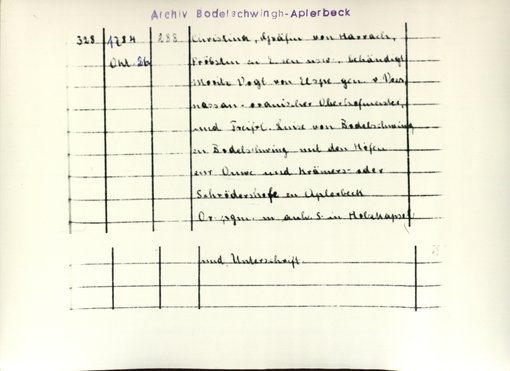 Archiv Bodelschwingh-Aplerbeck
328 1784 288 Christina, Gräfin von Harrach,
Okt. 26 Pröbstin zu Essen usw., behändigt
Moritz Vogt von Elspe gen. v
nassau-oranischer Oberhofmeister,
und Freifrl. Luise von Bodelschwing
zu Bodelschwing mit den Höfen
zur Ouwe und Krämers- oder
Schrödershofe zu Aplerbeck
Or. pgm. m. anh. S. in Holzkapsel
und Unterschrift.